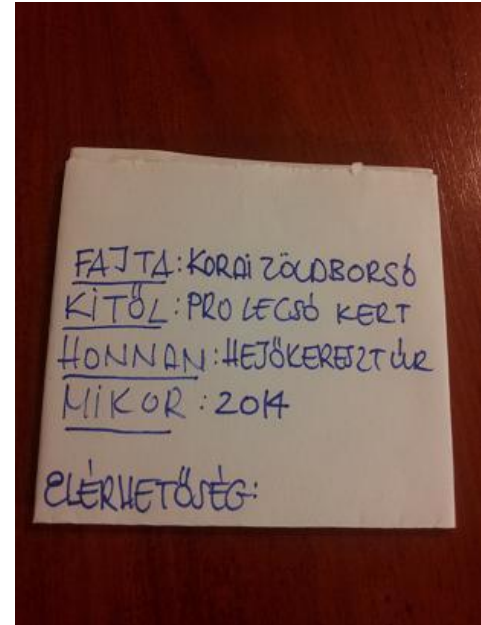 FAJTA: KORAI ZÖLDBORSÓ
KITŐL: PRO LECSÓ KERT
HONNAN: HEJŐKERESZTÚR
MIKOR: 2014
ELÉRHETŐSÉG: